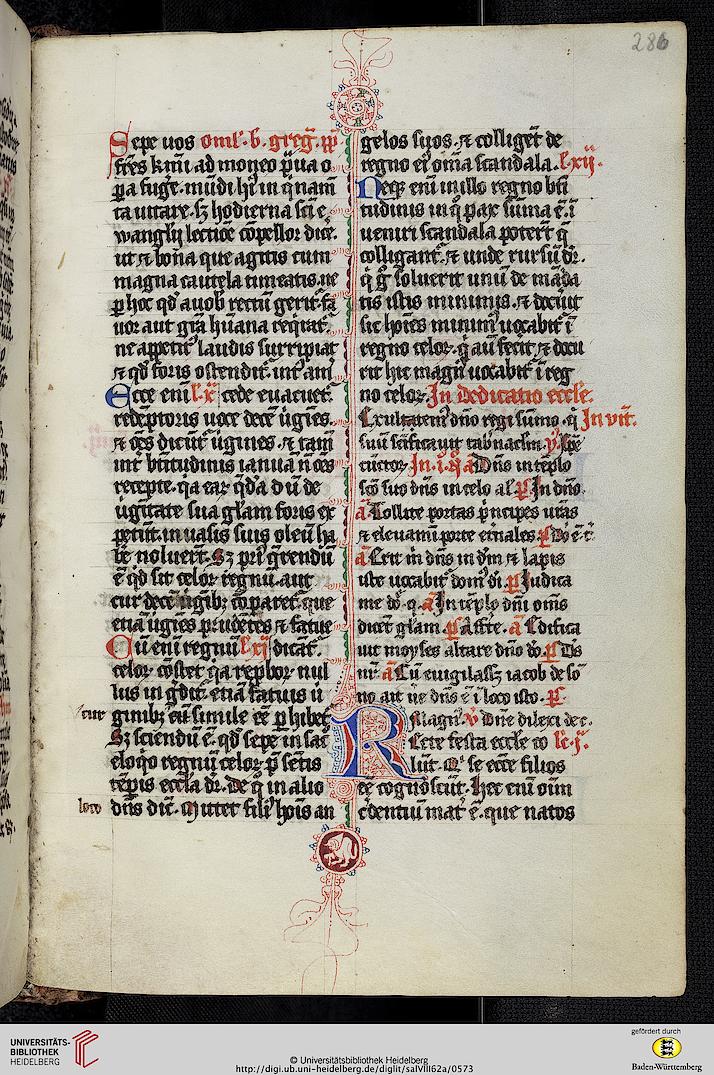 286
Sepe uos oml'. b. greg̅. pp
fr̅es k̅mi ad moneo p̅ua o
p̅a fuge. mu̅di hi̅ in q̅nam
ta uitare. sz hodierna sc̅i e
wangl̅ij lectio̅e co̅pellor dice̅.
ut ⁊ bona que agitis cum
magna cautela timeatis. ne
p hoc qd̅ a uob̅ rectu̅ gerit̅. fa
uor aut gr̅a hu̅ana requirat̅.
ne appetit9 laudis surripiat
⁊ qd̅ foris ostendit̅. int9 a
Ecce eni̅ l. x̅
rede̅ptoris uoce dece̅ u̅gi̅es.
⁊ o̅es dicu̅t̅ u̅gines. ⁊ tam̅
int̅ b̅titudinis ianua̅ n̅ o̅es
recepte. q̅a ear̅ q̅da̅ du̅ de
u̅gi̅tate sua gl̅am foris ex
petu̅t. in uasis suis oleu̅ ha
be̅ noluer̅t. Sz pri9 q̅rendu̅
e̅ qd̅ sit celor̅ regnu̅. aut
cur dece̅ u̅gi̅bz co̅paret̅. que
etia̅ u̅gi̅es prude̅tes ⁊ fatue
Cu̅ eni̅ regnu̅ l. xj dicat̅.
celor̅ co̅stet q̅a reprobor̅ nul
lus in g̅dit̅. etia̅ fatuis u̅
cur gi̅nibz cu̅ simile e̅e p hibet̅
Sz sciendu̅ e̅. qd̅ sepe in sac̅
eloq̅o regnu̅ celor̅ p̅sentis
te̅pis eccl̅a dr̅. de q̅ in alio
loco dn̅s dic̅. Mittet fili9 ho̅is an
gelos suos. ⁊ colliget̅ de
regno ei9 om̅ia scandala. l. xij.
Neqz eni̅ in illo regno b̅ti
tudinis in q̅ pax su̅ma e̅. i̅
ueniri scandala poter̅t q̅
colligant̅. ⁊ unde rursu̅ dr̅.
q̅ g̅ soluerit unu̅ de ma̅da
tis istis minimis. ⁊ docuit̅
sic ho̅ies minim9 uocabit̅ i̅
regno celor̅. q̅ au̅ fecit̅ ⁊ docu
rit hic magn9 uocabit̅ i̅ reg
no celor̅. In dedicatio eccl̅e.
Exultatem9 dn̅o regi su̅mo. q̅ In vit̅.
suu̅ sc̅ificauit tab̅nacl̅m. p̅s
In. i. n̅. a Dn̅s in te̅plo
sc̅o suo dn̅s in celo p̅s In dn̅o.
a Tollite portas p̅ncipes u̅ras
⁊ eleuamini porte et̅nales. p̅s
a Erit m̅ dn̅s in d̅m ⁊ lapis
iste uocabit̅ dom9 di̅. p̅s Judica
me a In te̅plo dn̅i om̅s
dice̅t gl̅am. p̅s Afferte. a Edifica
uit moyses altare dn̅o do̅. p̅s D̅s
nr̅. a Cu̅ euigilass̅z iacob de so̅
no ait ue̅ dn̅s e̅ i̅ loco isto. p̅s
Magn9 v Dn̅e dilexi dec.
REcte festa eccl̅e co l̅c. j.
lu̅t. q̅ se ecc̅e filios
e̅e cognoscu̅t. Hec eni̅ om̅
c̅dentiu̅ mat̅ e̅. que natos
UNIVERSITÄTS-
BIBLIOTHEK
HEIDELBERG
© Universitätsbibliothek Heidelberg
http://digi.ub.uni-heidelberg.de/diglit/salVIII62a/0573
gefördert durch
Baden-Württemberg